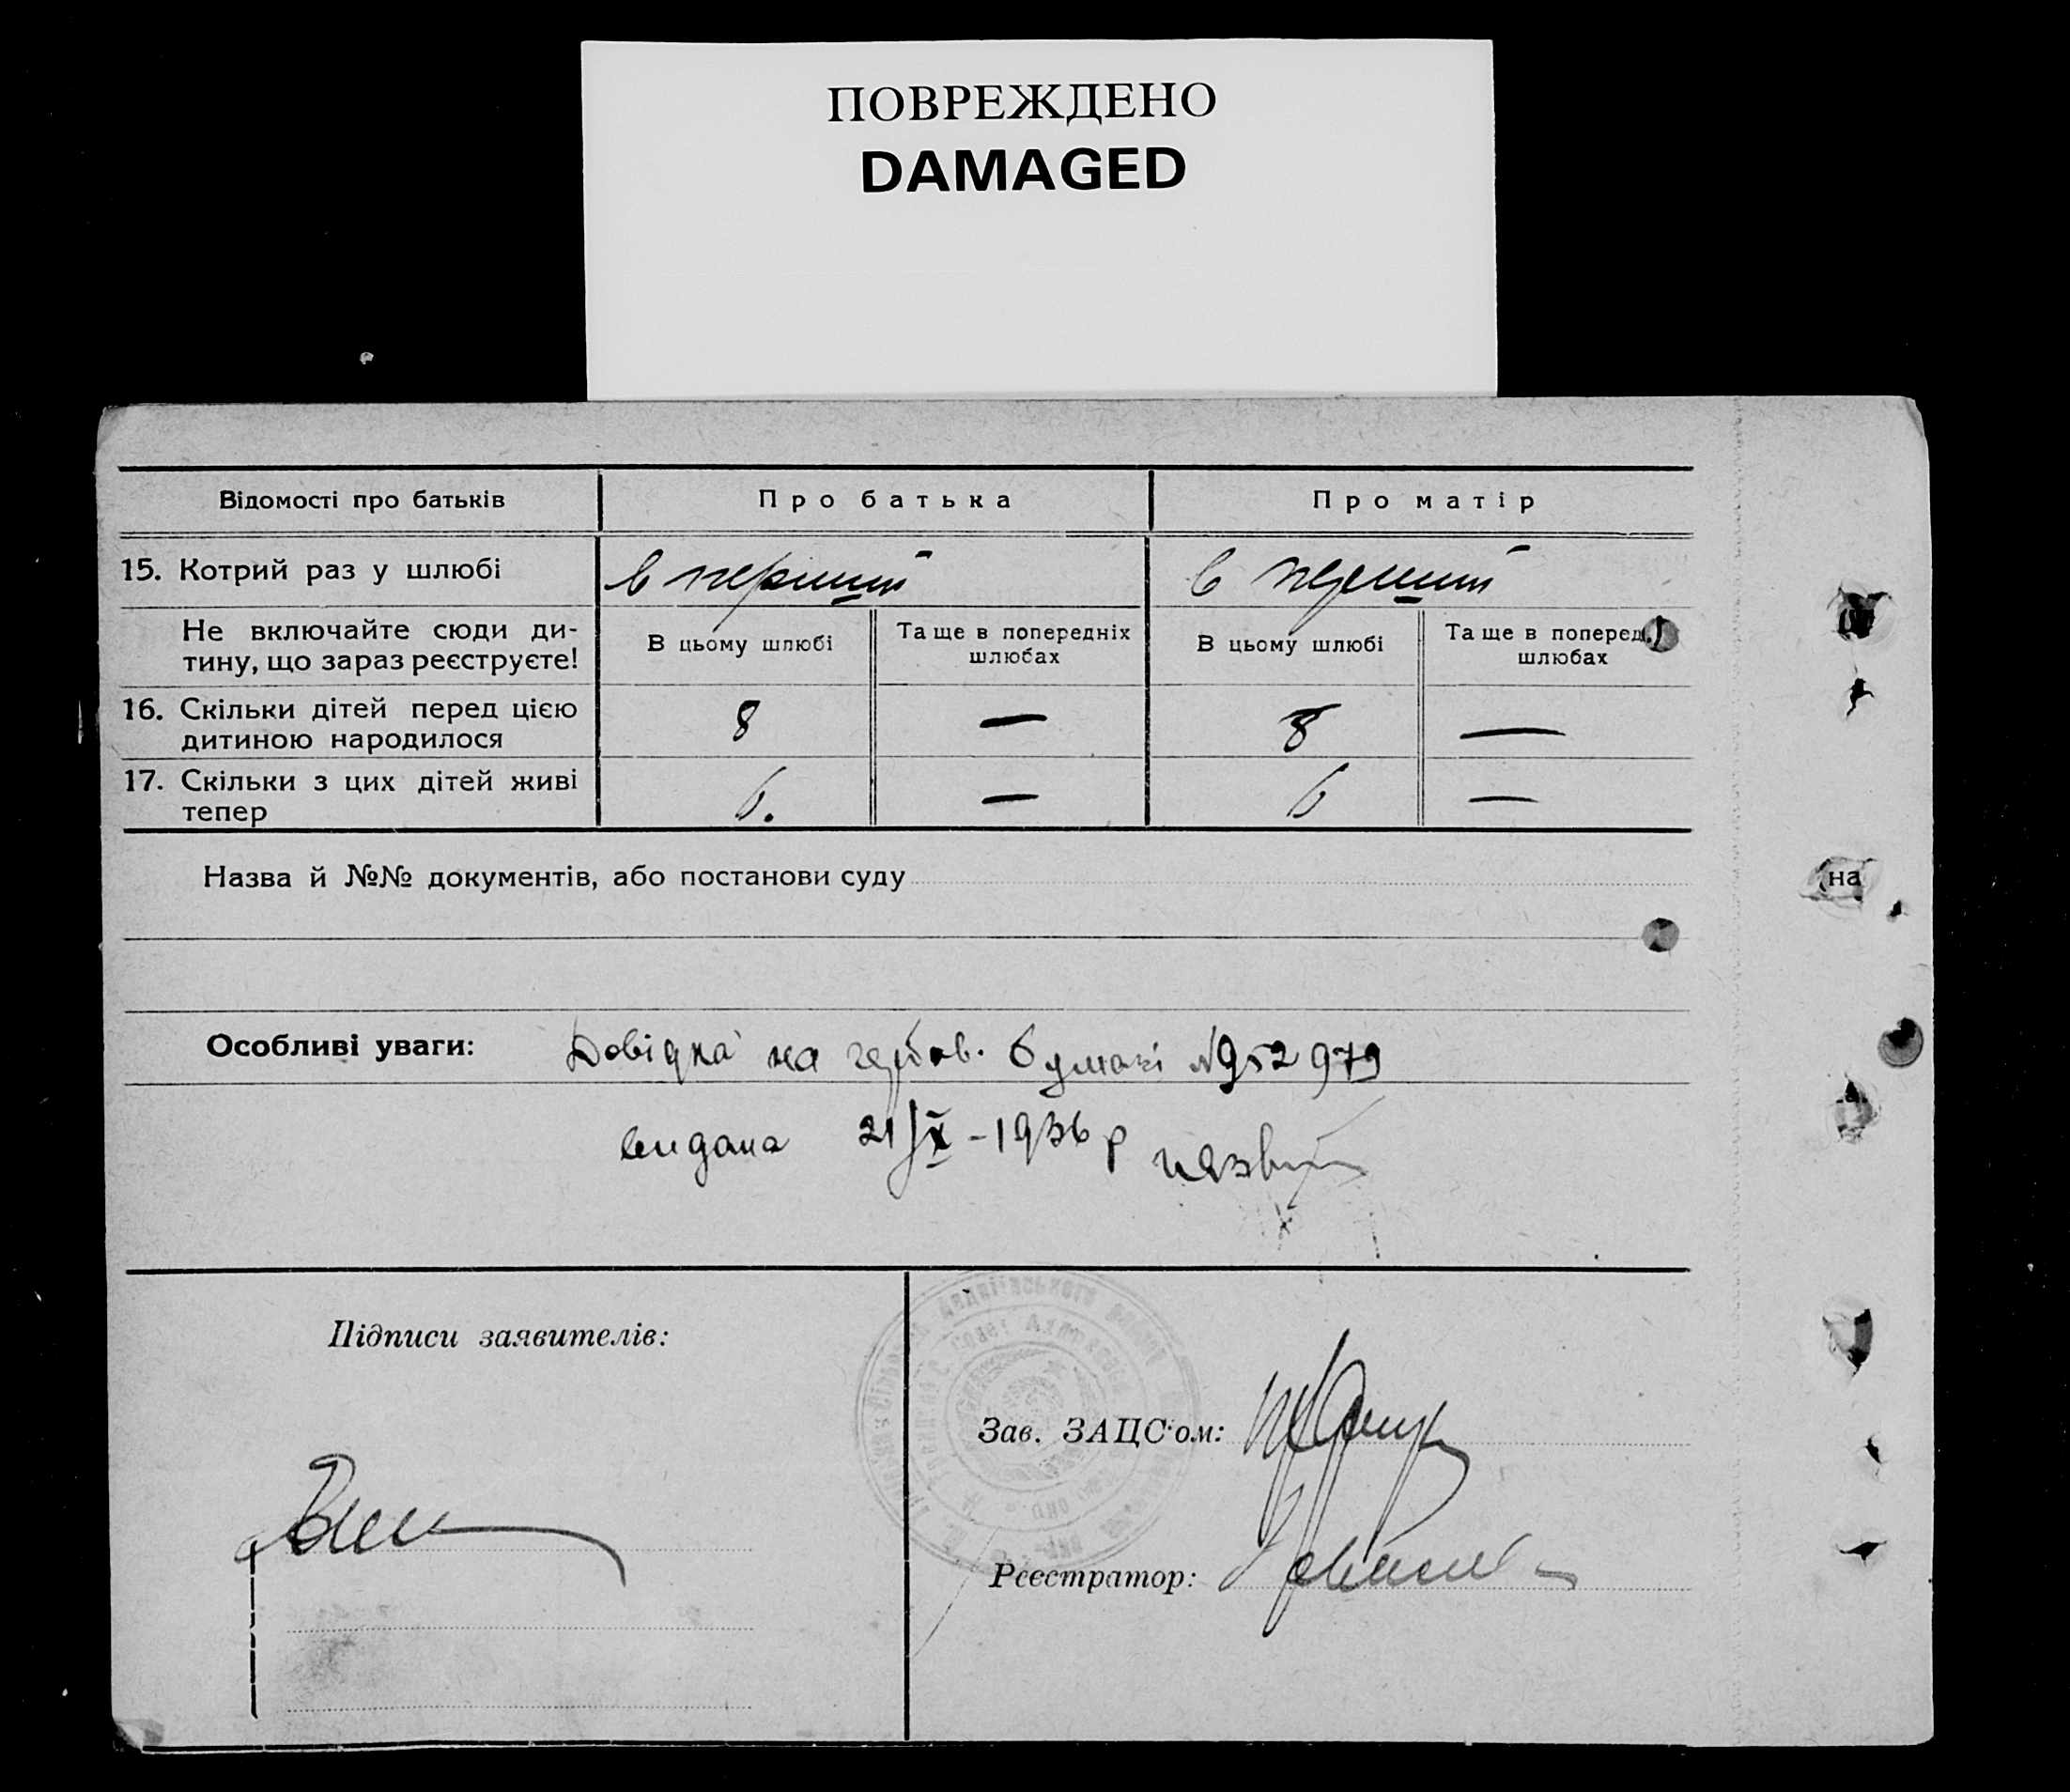 ПОВРЕЖДЕНО
DAMAGED
Відомості про батьків
Про батька
Про матір
15. Котрий раз у шлюбі
в перший
в перший
Не включайте сюди ди-
тину, що зараз реєструєте!
В цьому шлюбі
Та ще в попередніх
шлюбах
В цьому шлюбі
Та ще в поперед
шлюбах
16. Скільки дітей перед цією
дитиною народилося
8
—
8
—
17. Скільки з цих дітей живі
тепер
6.
—
6
—
Назва й №№ документів, або постанови суду
на
Особливі уваги: Довідка на гербов. бумазі №952979
видана 21/IX-1936 р
Підписи заявителів:
Зав. ЗАЦС'ом:
Реєстратор: